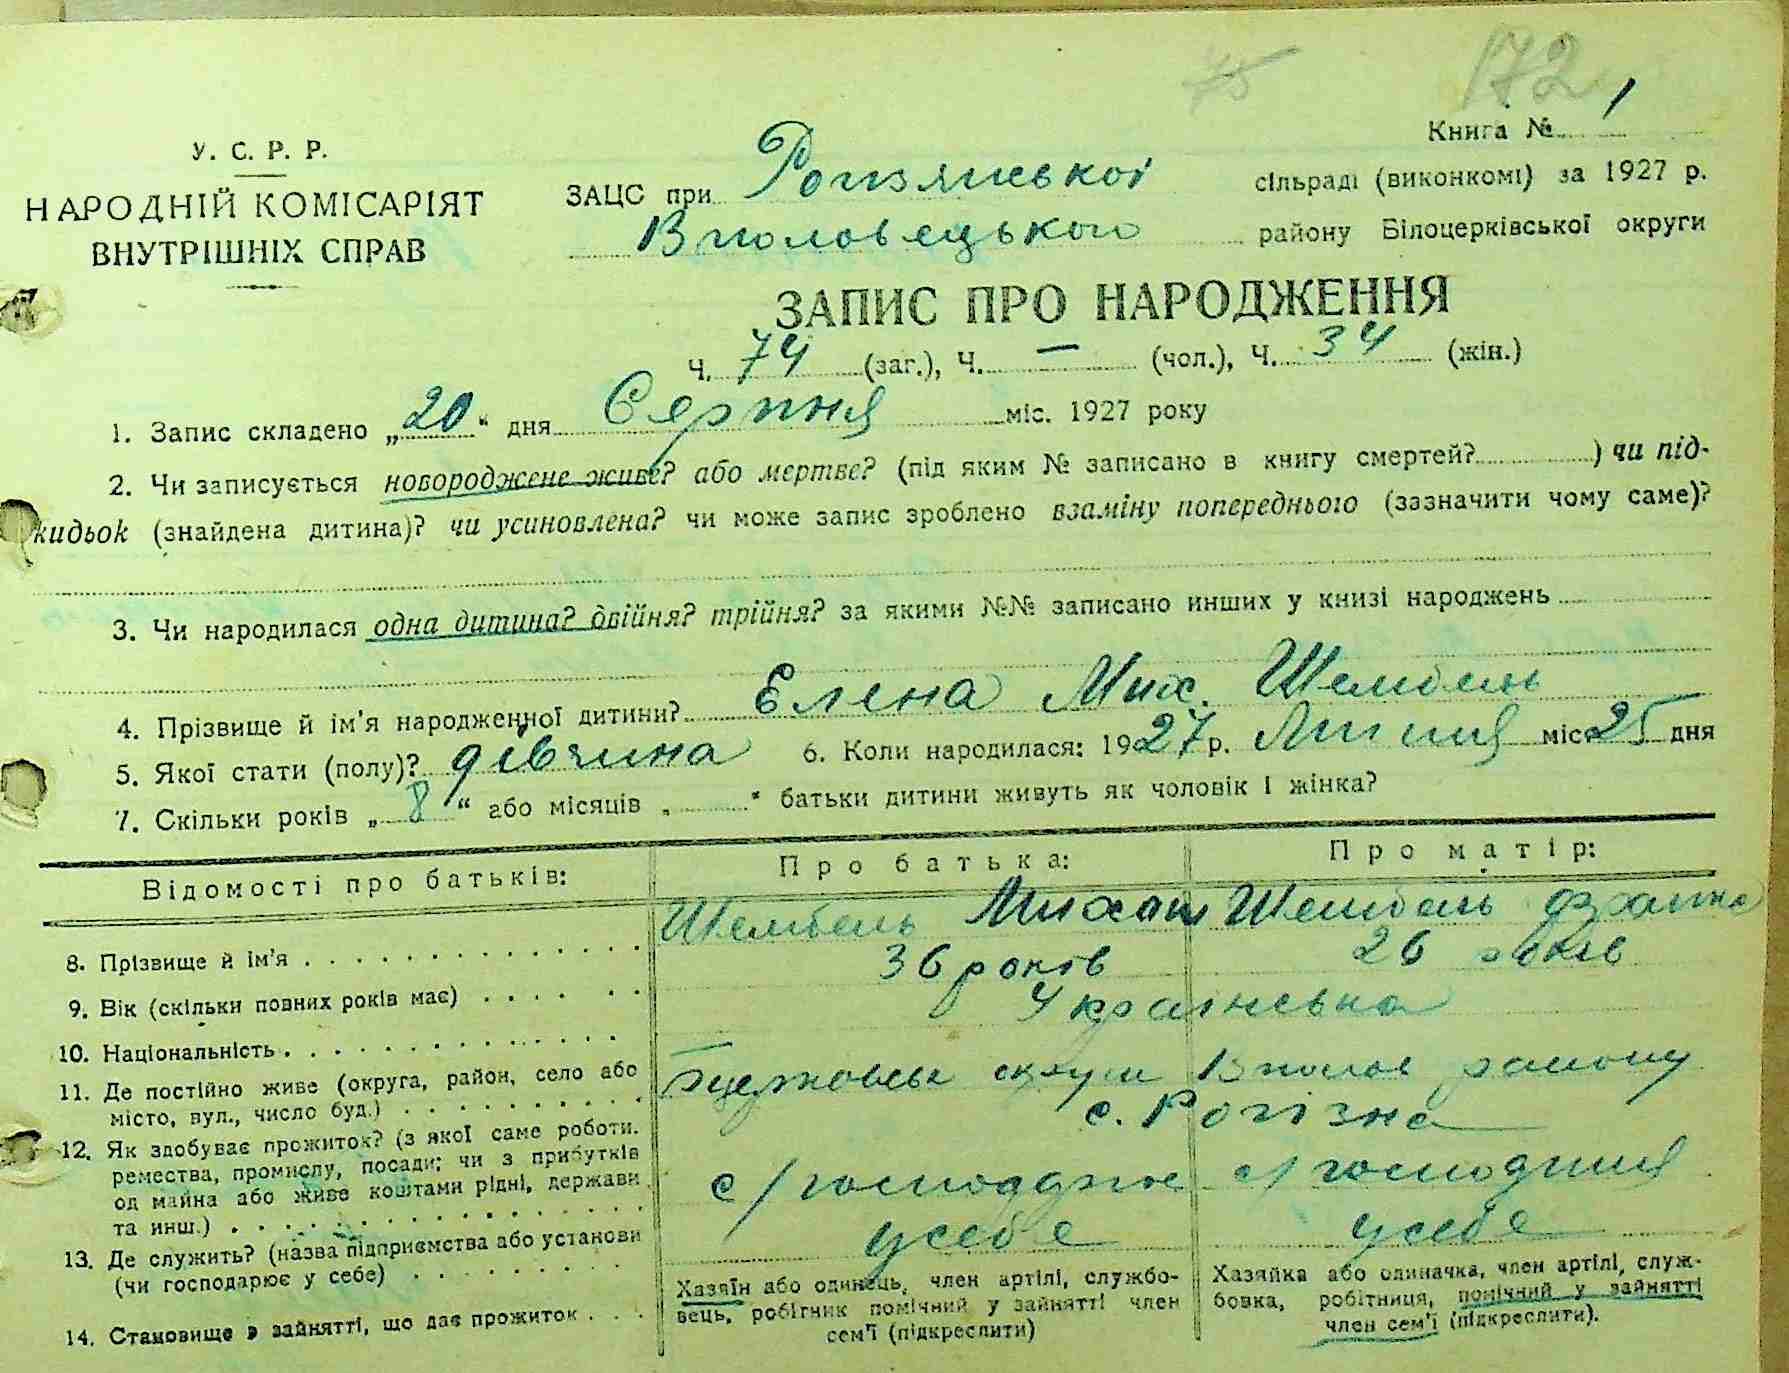 75
172
Книга № 1
У. С. Р. Р.
НАРОДНІЙ КОМІСАРІЯТ
ВНУТРІШНІХ СПРАВ
ЗАЦС при Рогізянської сільраді (виконкомі) за 1927 р.
В половецького району Білоцерківської округи
ЗАПИС ПРО НАРОДЖЕННЯ
Ч. 74 (заг.), Ч. — (чол.), Ч. 34 (жін.)
1. Запис складено „20“ дня Серпня міс. 1927 року
2. Чи записується новороджене живе? або мертве? (під яким № записано в книгу смертей? ) чи під-
кидьок (знайдена дитина)? чи усиновлена? чи може запис зроблено взаміну попереднього (зазначити чому саме)?
3. Чи народилася одна дитина? двійня? трійня? за якими №№ записано инших у книзі народжень
4. Прізвище й ім'я народженної дитини? Елена Мих. Шембель
5. Якої стати (полу)? дівчина 6. Коли народилася: 1927 р. Липня міс. 25 дня
7. Скільки років „8“ або місяців „ “ батьки дитини живуть як чоловік і жінка?
Відомості про батьків: Про батька: Про матір:
8. Прізвище й ім'я Шембель Михаил Шембель
9. Вік (скільки повних років має) 36 років 26 років
10. Національність Українська
11. Де постійно живе (округа, район, село або
місто, вул., число буд.) округи В полов району
с. Рогізна
12. Як здобуває прожиток? (з якої саме роботи.
ремества, промислу, посади; чи з прибутків
од майна або живе коштами рідні, держави
та инш.) с/господарює с/господиня
13. Де служить? (назва підприємства або установи
(чи господарює у себе) у себе у себе
14. Становище в зайнятті, що дає прожиток
Хазяїн або одинець, член артілі, службо-
вець, робітник помічний у зайнятті член
сем'ї (підкреслити)
Хазяйка або одиначка, член артілі, служ-
бовка, робітниця, помічний у зайнятті
член сем'ї (підкреслити).